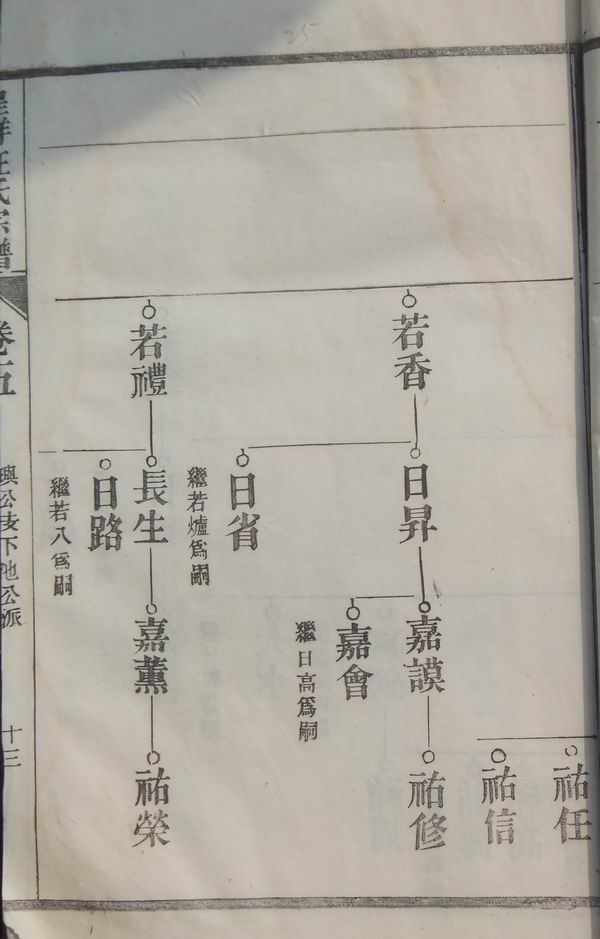 祐任
祐信
若香
日昇
嘉謨
祐修
嘉會
繼日高爲嗣
日省
繼若爐爲嗣
若禮
長生
嘉薰
祐榮
日路
繼若八爲嗣
汪氏宗譜
卷五
公支下池公派
十三
25